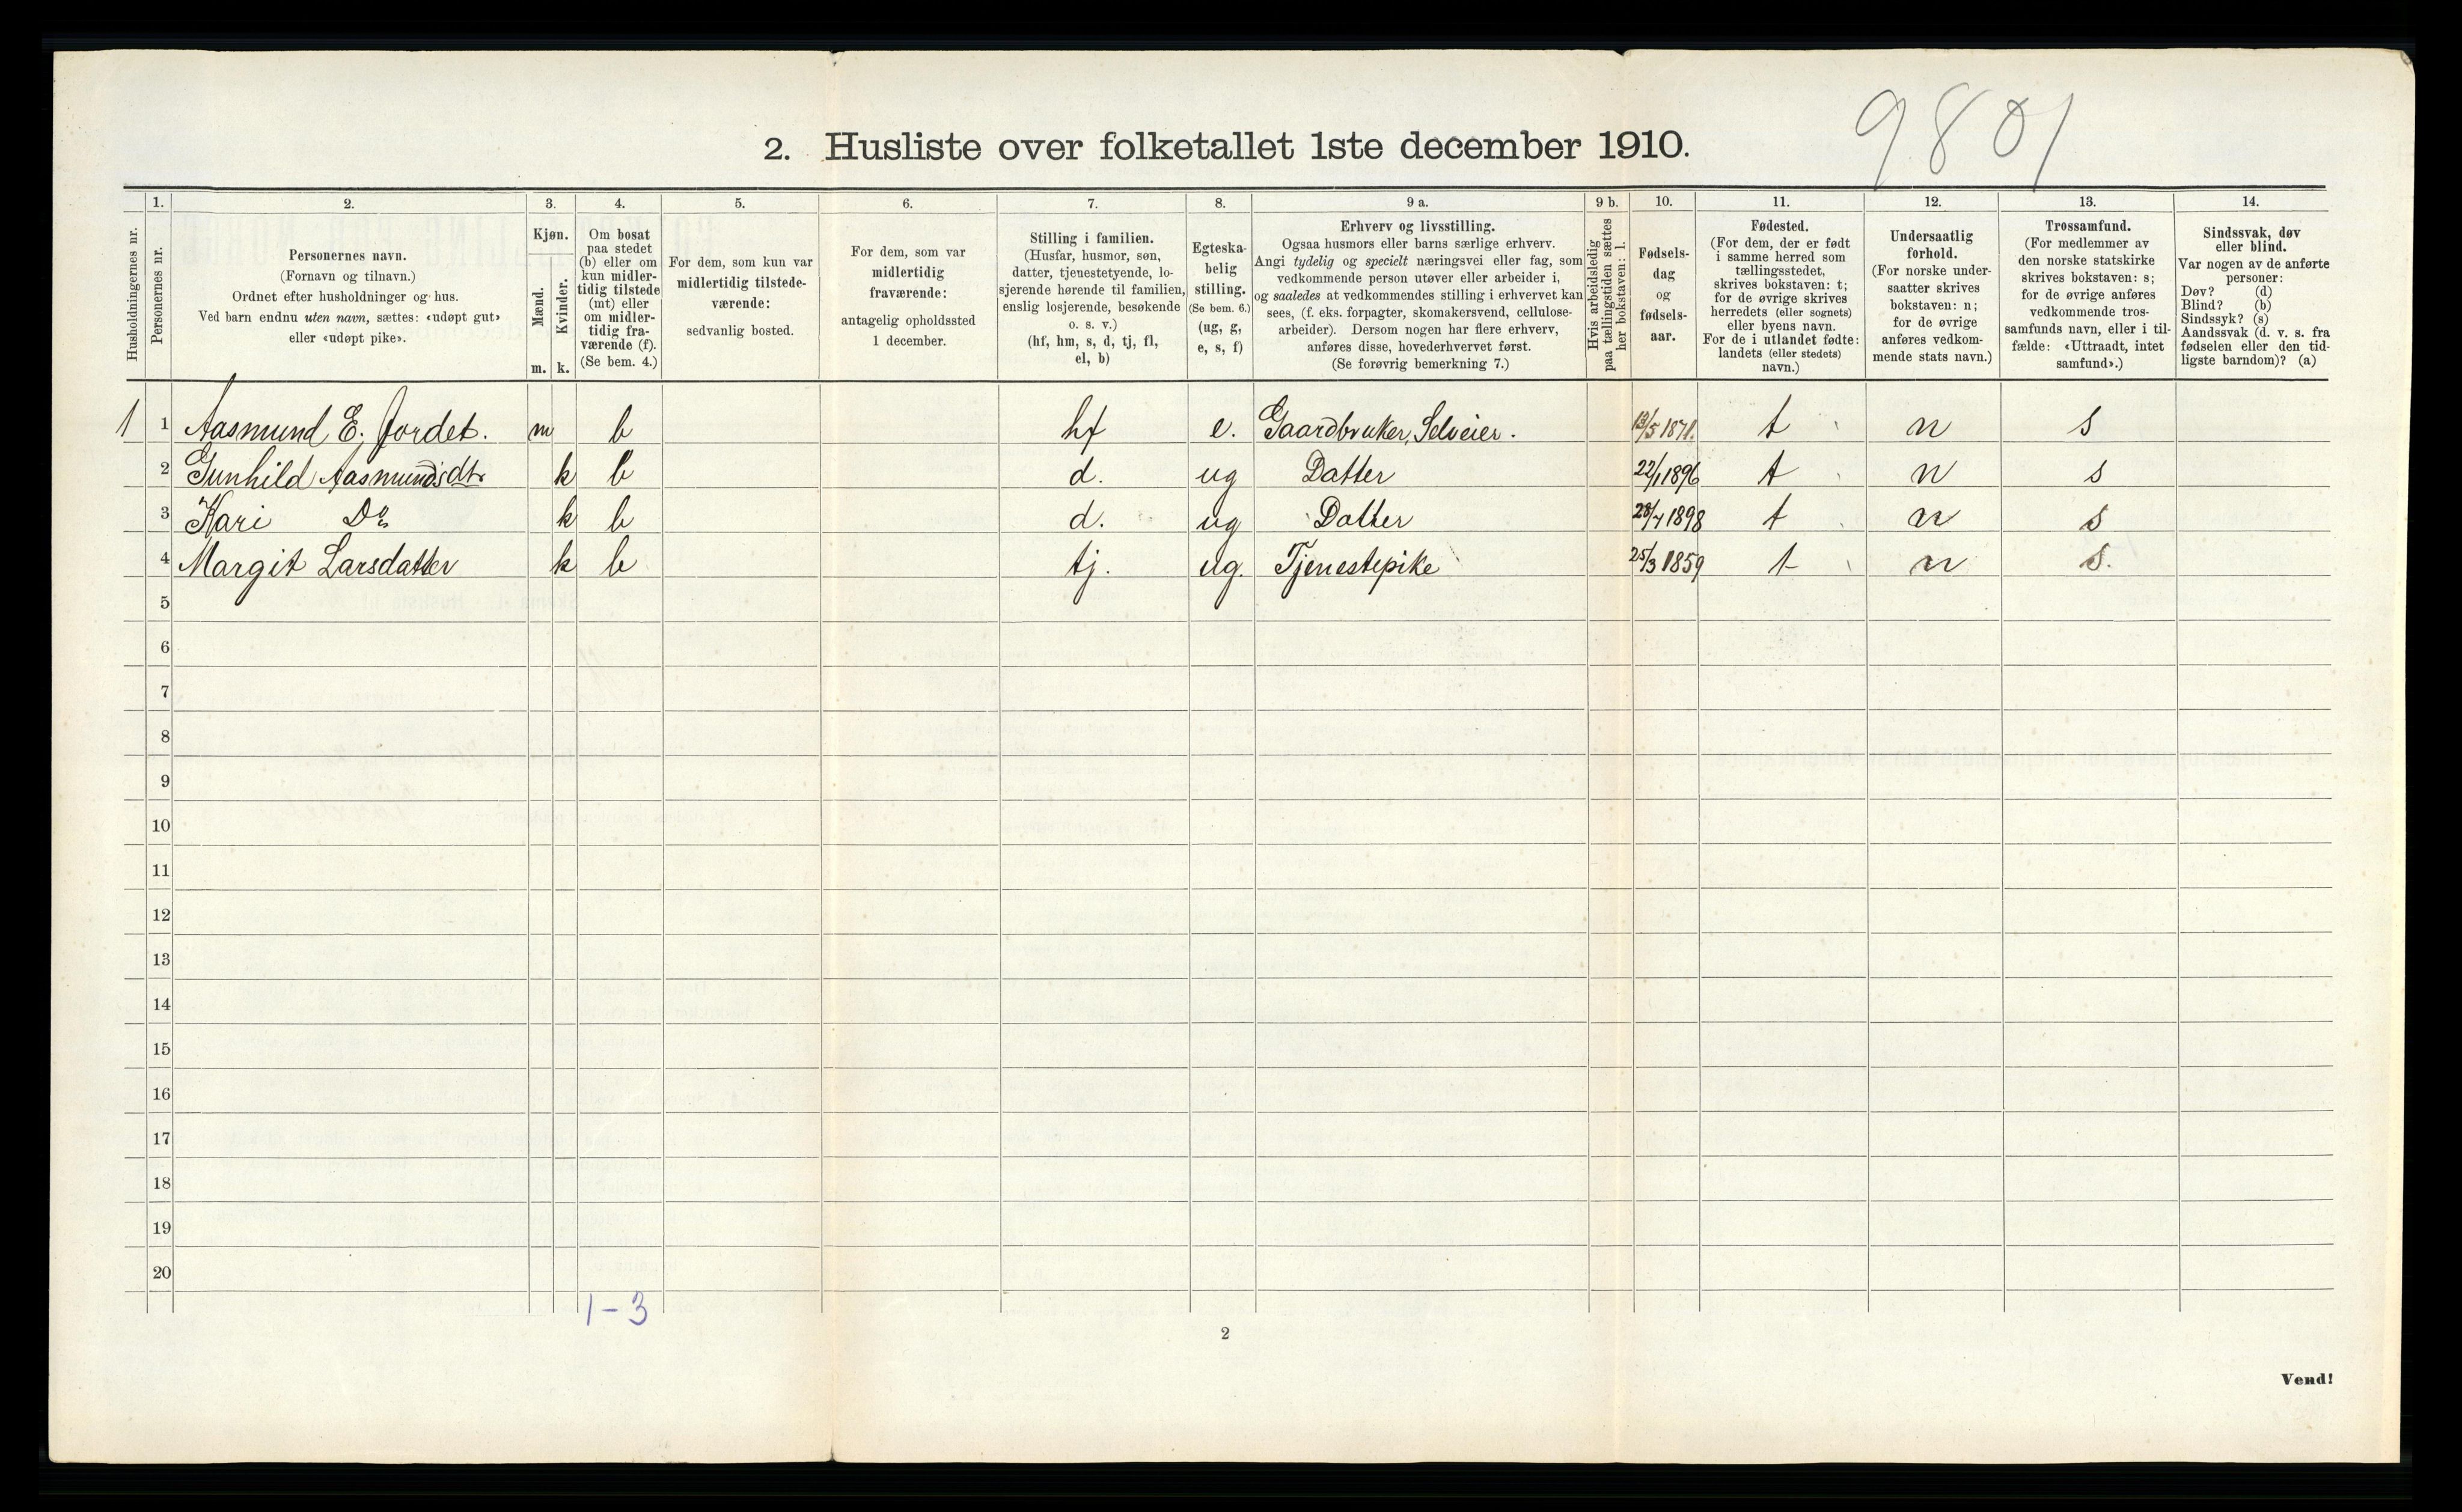 9801
2. Husliste over folketallet 1ste december 1910.
Husholdningernes nr.
1.
Personernes nr.
2.
Personernes navn.
(Fornavn og tilnavn.)
Ordnet efter husholdninger og hus.
Ved barn endnu uten navn, sættes: «udøpt gut»
eller «udøpt pike».
3.
Kjøn.
Mænd.
Kvinder.
m. k.
4.
Om bosat
paa stedet
(b) eller om
kun midler-
tidig tilstede
(mt) eller
om midler-
tidig fra-
værende (f).
(Se bem. 4.)
5.
For dem, som kun var
midlertidig tilstede-
værende:
sedvanlig bosted.
6.
For dem, som var
midlertidig
fraværende:
antagelig opholdssted
1 december.
7.
Stilling i familien.
(Husfar, husmor, søn,
datter, tjenestetyende, lo-
sjerende hørende til familien,
enslig losjerende, besøkende
o. s. v.)
(hf, hm, s, d, tj, fl,
el, b)
8.
Egteska-
belig
stilling.
(Se bem. 6.)
(ug, g,
e, s, f)
9 a.
Erhverv og livsstilling.
Ogsaa husmors eller barns særlige erhverv.
Angi tydelig og specielt næringsvei eller fag, som
vedkommende person utøver eller arbeider i,
og saaledes at vedkommendes stilling i erhvervet kan
sees, (f. eks. forpagter, skomakersvend, cellulose-
arbeider). Dersom nogen har flere erhverv,
anføres disse, hovederhvervet først.
(Se forøvrig bemerkning 7.)
9 b.
Hvis arbeidsledig
paa tællingstiden sættes
her bokstaven: l.
10.
Fødsels-
dag
og
fødsels-
aar.
11.
Fødested.
(For dem, der er født
i samme herred som
tællingsstedet,
skrives bokstaven: t;
for de øvrige skrives
herredets (eller sognets)
eller byens navn.
For de i utlandet fødte:
landets (eller stedets)
navn.)
12.
Undersaatlig
forhold.
(For norske under-
saatter skrives
bokstaven: n;
for de øvrige
anføres vedkom-
mende stats navn.)
13.
Trossamfund.
(For medlemmer av
den norske statskirke
skrives bokstaven: s;
for de øvrige anføres
vedkommende tros-
samfunds navn, eller i til-
fælde: «Uttraadt, intet
samfund».)
14.
Sindssvak, døv
eller blind.
Var nogen av de anførte
personer:
Døv? (d)
Blind? (b)
Sindssyk? (s)
Aandssvak (d. v. s. fra
fødselen eller den tid-
ligste barndom)? (a)
1 1 Aasmund E. Jordet. m b hf e. Gaardbruker, Selveier. 13/5 1871. t n s
2 Gunhild Aasmundsdtr k b d. ug Datter 22/1 1896 t n s
3 Kari Do k b d. ug Datter 28/4 1898 t n s
4 Margit Larsdatter k b tj. ug. Tjenestepike 25/3 1859 t n s.
5
6
7
8
9
10
11
12
13
14
15
16
17
18
19
20
1-3
2
Vend!